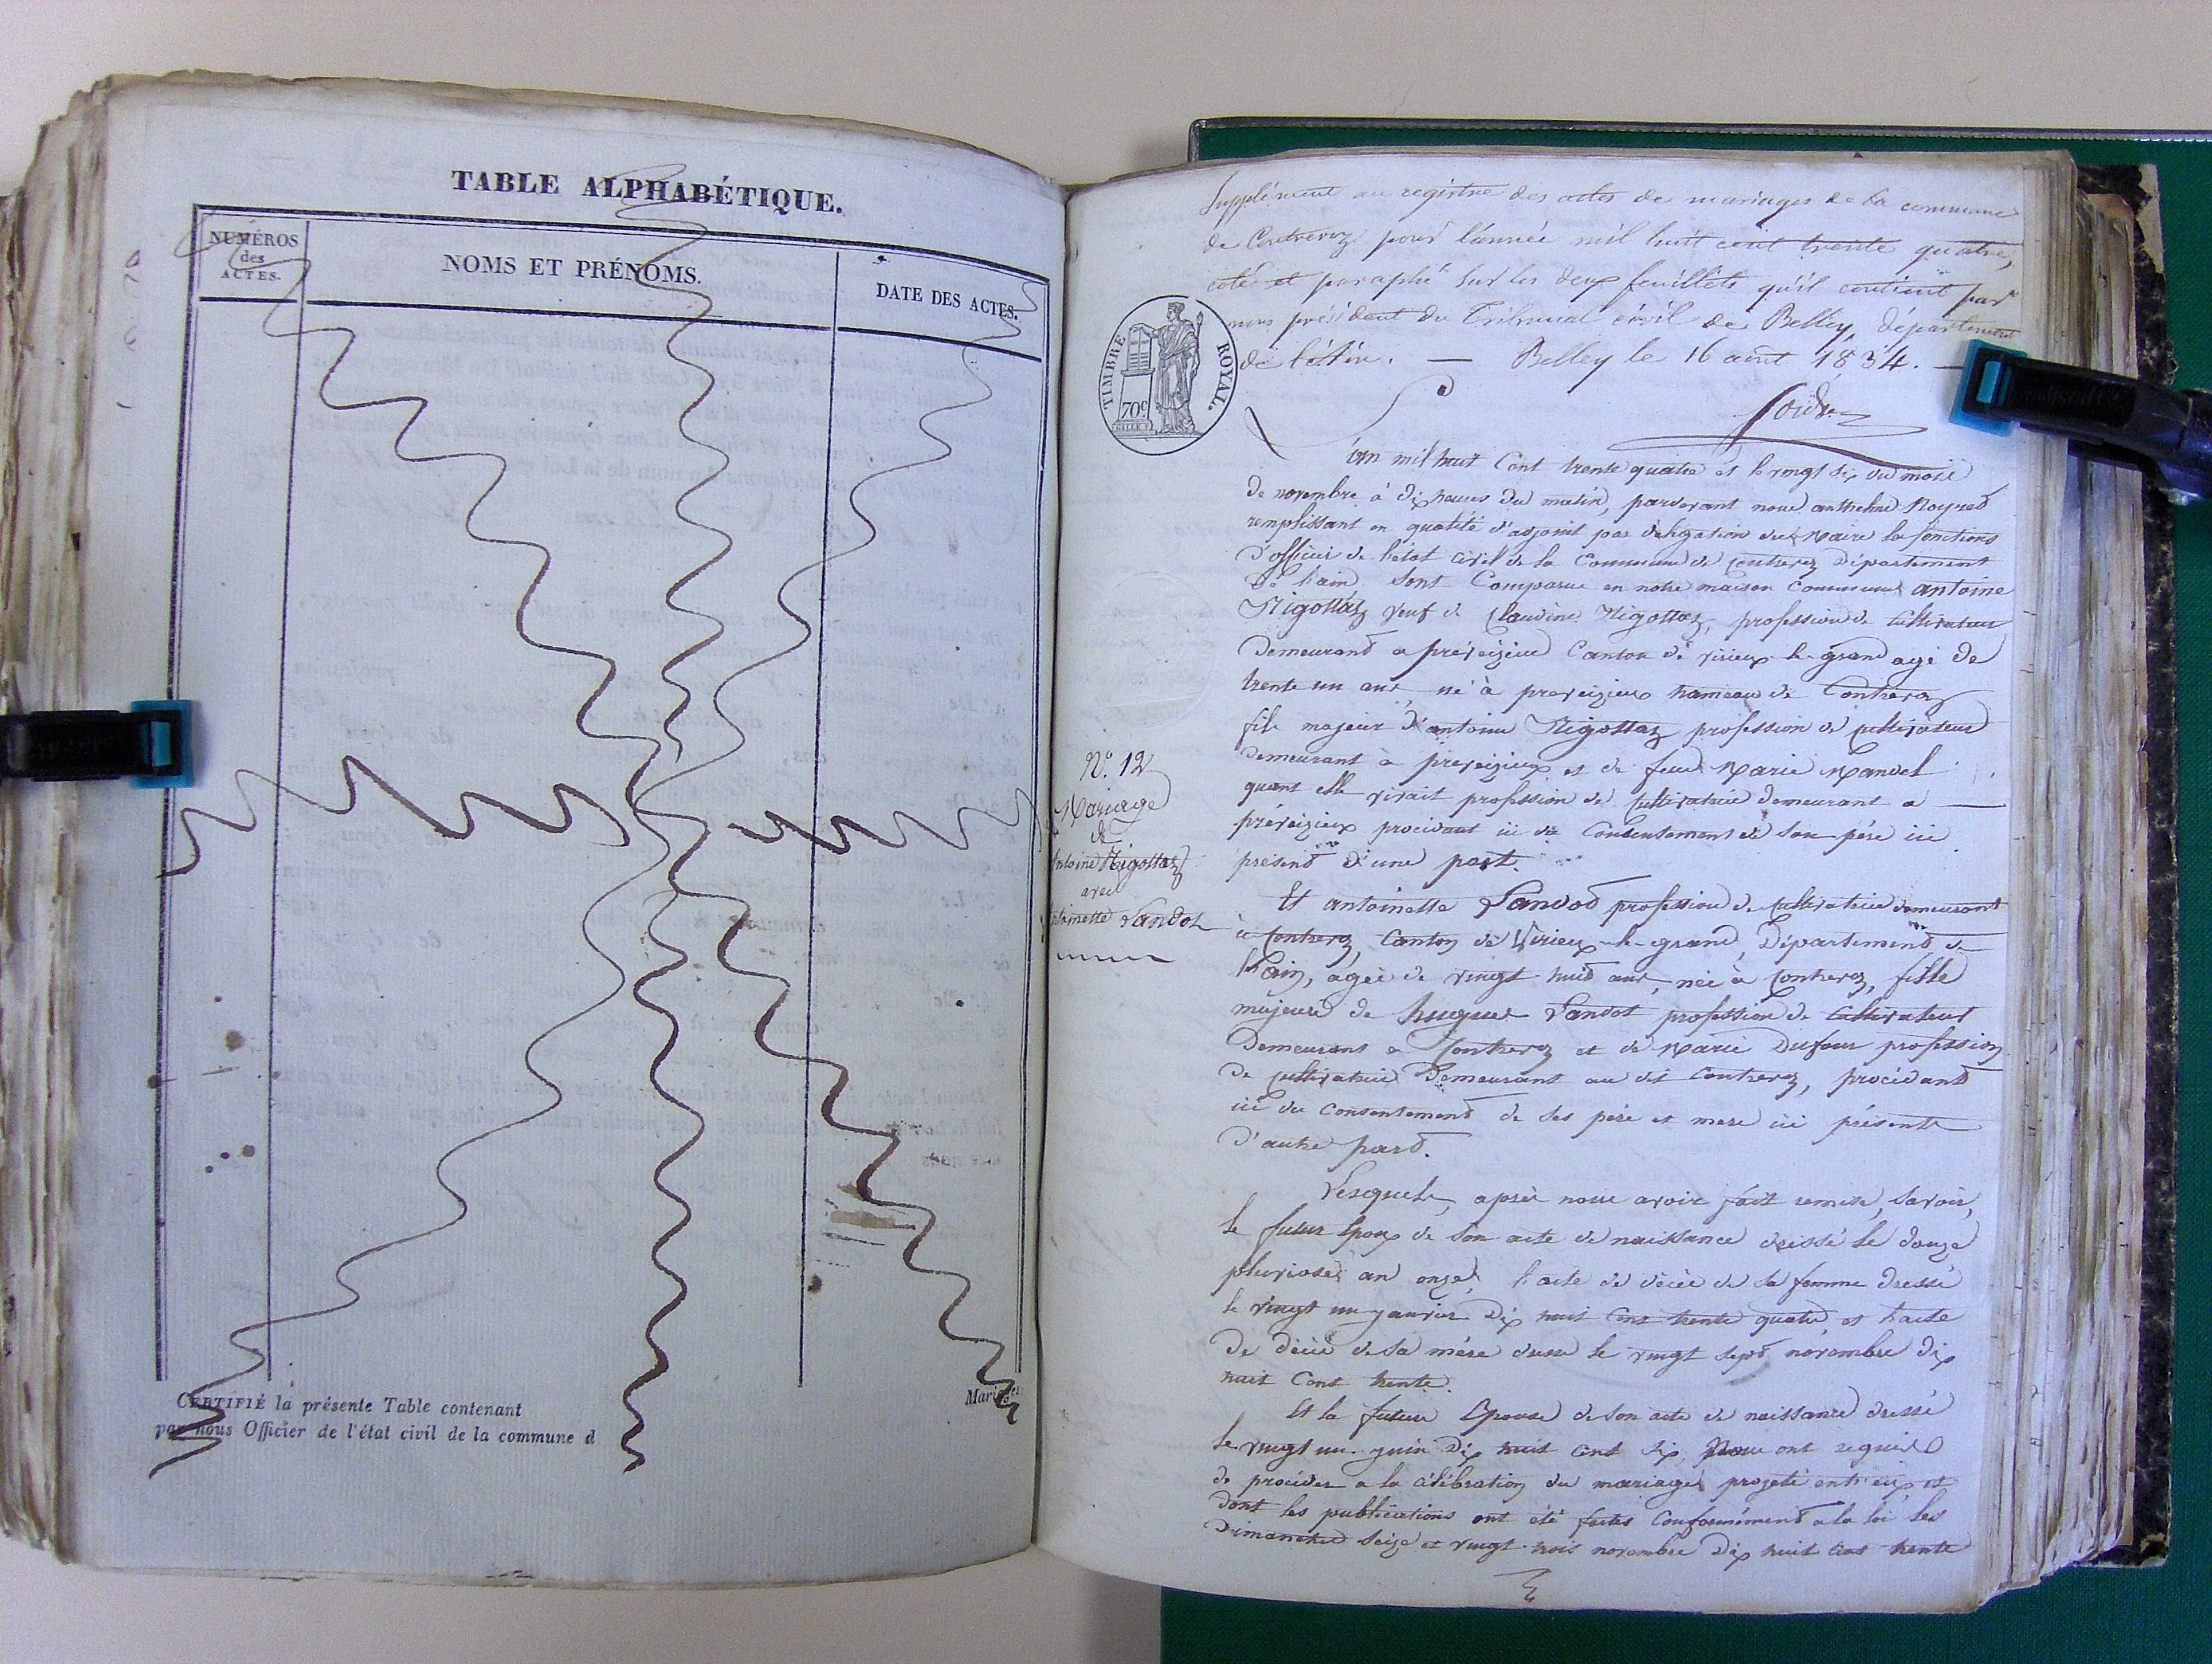 TABLE ALPHABÉTIQUE.
NUMÉROS
des
ACTES.
NOMS ET PRÉNOMS.
DATE DES ACTES.
CERTIFIÉ la présente Table contenant
par nous Officier de l'état civil de la commune d
Supplément au registre des actes de mariages de la commune
de Contrevoz pour l'année mil huit cent trente quatre,
coté et paraphé sur les deux feuillets qu'il contient par
nous président du Tribunal civil de Belley, département
de l'Ain. — Belley le 16 août 1834. —
TIMBRE ROYAL.
70c
L'an mil huit Cent trente quatre et le vingt six du mois
de novembre à dix heures du matin, pardevant nous anthelme
remplissant en qualité d'adjoint par délégation du Maire les fonctions
d'officier de l'état civil de la Commune de contrevoz Département
de l'ain. sont Comparus en notre maison Commune antoine
Nigottaz veuf de Claudine Nigottaz, profession de Cultivateur
Demeurand a préveizieu Canton de virieu le grand agé de
trente un ans né à preveizieux hameau de Contrevoz
fils majeur d'antoine Nigottaz profession de Cultivateur
demeurant à préveizieux et de feue Marie
quant elle vivait profession de Cultivatrice demeurant a —
préveizieux procédant ici du Consentement de son père ici
présend d'une part.
N.° 12
Mariage
de
antoine Nigottaz
avec
antoinette Landot
Et antoinette Landod profession de Cultivatrice demeurant
à Contrevoz, Canton de Virieux-le-grand, Départemend de
l'ain, agée de vingt huid ans, née à Contrevoz, fille
majeure de hugues Landot profession de Cultivateur
Demeurant a Contrevoz et de Marie Dufour profession
de Cultivatrice Demeurant au dit Contrevoz, procédant
ici du Consentemend de ses père et mere ici présents
D'autre pard.
Lesquels, après nous avoir fait remise, savoir,
le futur Epoux de son acte de naissance dressé le douze
pluviose an onze, l'acte de décès de sa femme dressé
le vingt un janvier dix huit Cent trente quatre, et l'acte
de décès de sa mère dressé le vingt sept novembre dix
huit Cent trente.
Et la future Epouse de son acte de naissance dressé
le vingt un juin dix huit cent six, Nous ont requis
de procéder a la célébration du mariage projeté entr'eux et
dont les publications ont été faites Conformémend a la loi les
Dimanches seize et vingt trois novembre dix huit cent trente